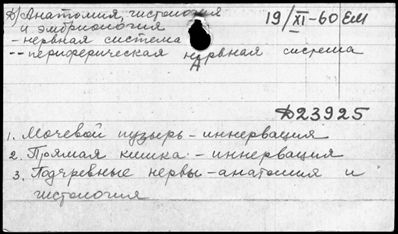 А) Анатомия, гистология
и эмбриология
19/XI-60 ЕМ
- нервная система
-- периферическая нервная система
Д23925
1. Мочевой пузырь - иннервация
2. Прямая кишка - иннервация
3. Подчревные нервы - анатомия и
гистология